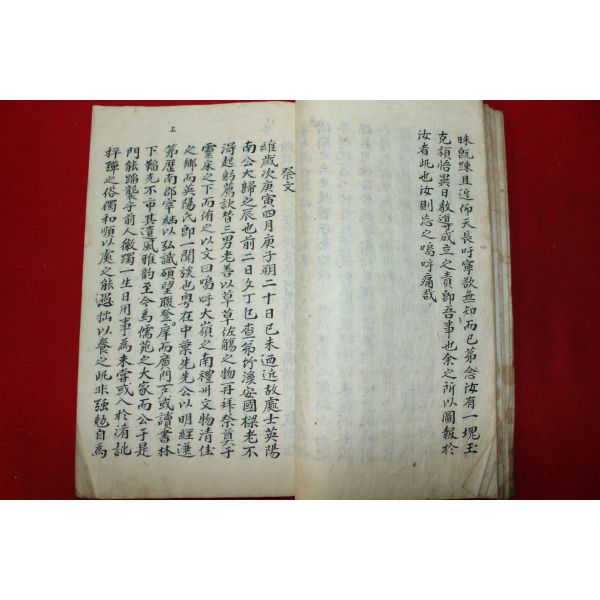 昧旣踈且近仰天長吁寧欲無知而已第念汝有一塊玉
克頴悟異日敎導成立之責卽吾事也余之所以圖報於
汝者此也汝則忘之嗚呼痛哉
祭文
維歲次庚寅四月庚子朔二十日己未迺近故處士英陽
南公大歸之辰也前二日丁巳查弟竹溪安國樑老不
淂起躬萬訣替三男老善以草草佐觴之物再拜祭奠于
靈床之下而侑之以文曰嗚呼大嶺之南禮州文物清佳
之鄕而英陽氏卽一閥族也粤在中葉先先公以明經選
第歷南郡宰継以弘識碩望聯登庠而廣門左或讀書林
下韜光不市其遺風雅韵至今爲儒苑之大家而公于是
門能蹈襲乎前人徽躅一生日用事爲未嘗或入於淆訛
抨彈之俗獨和順以處之能過拙以養之此非強勉自爲
上